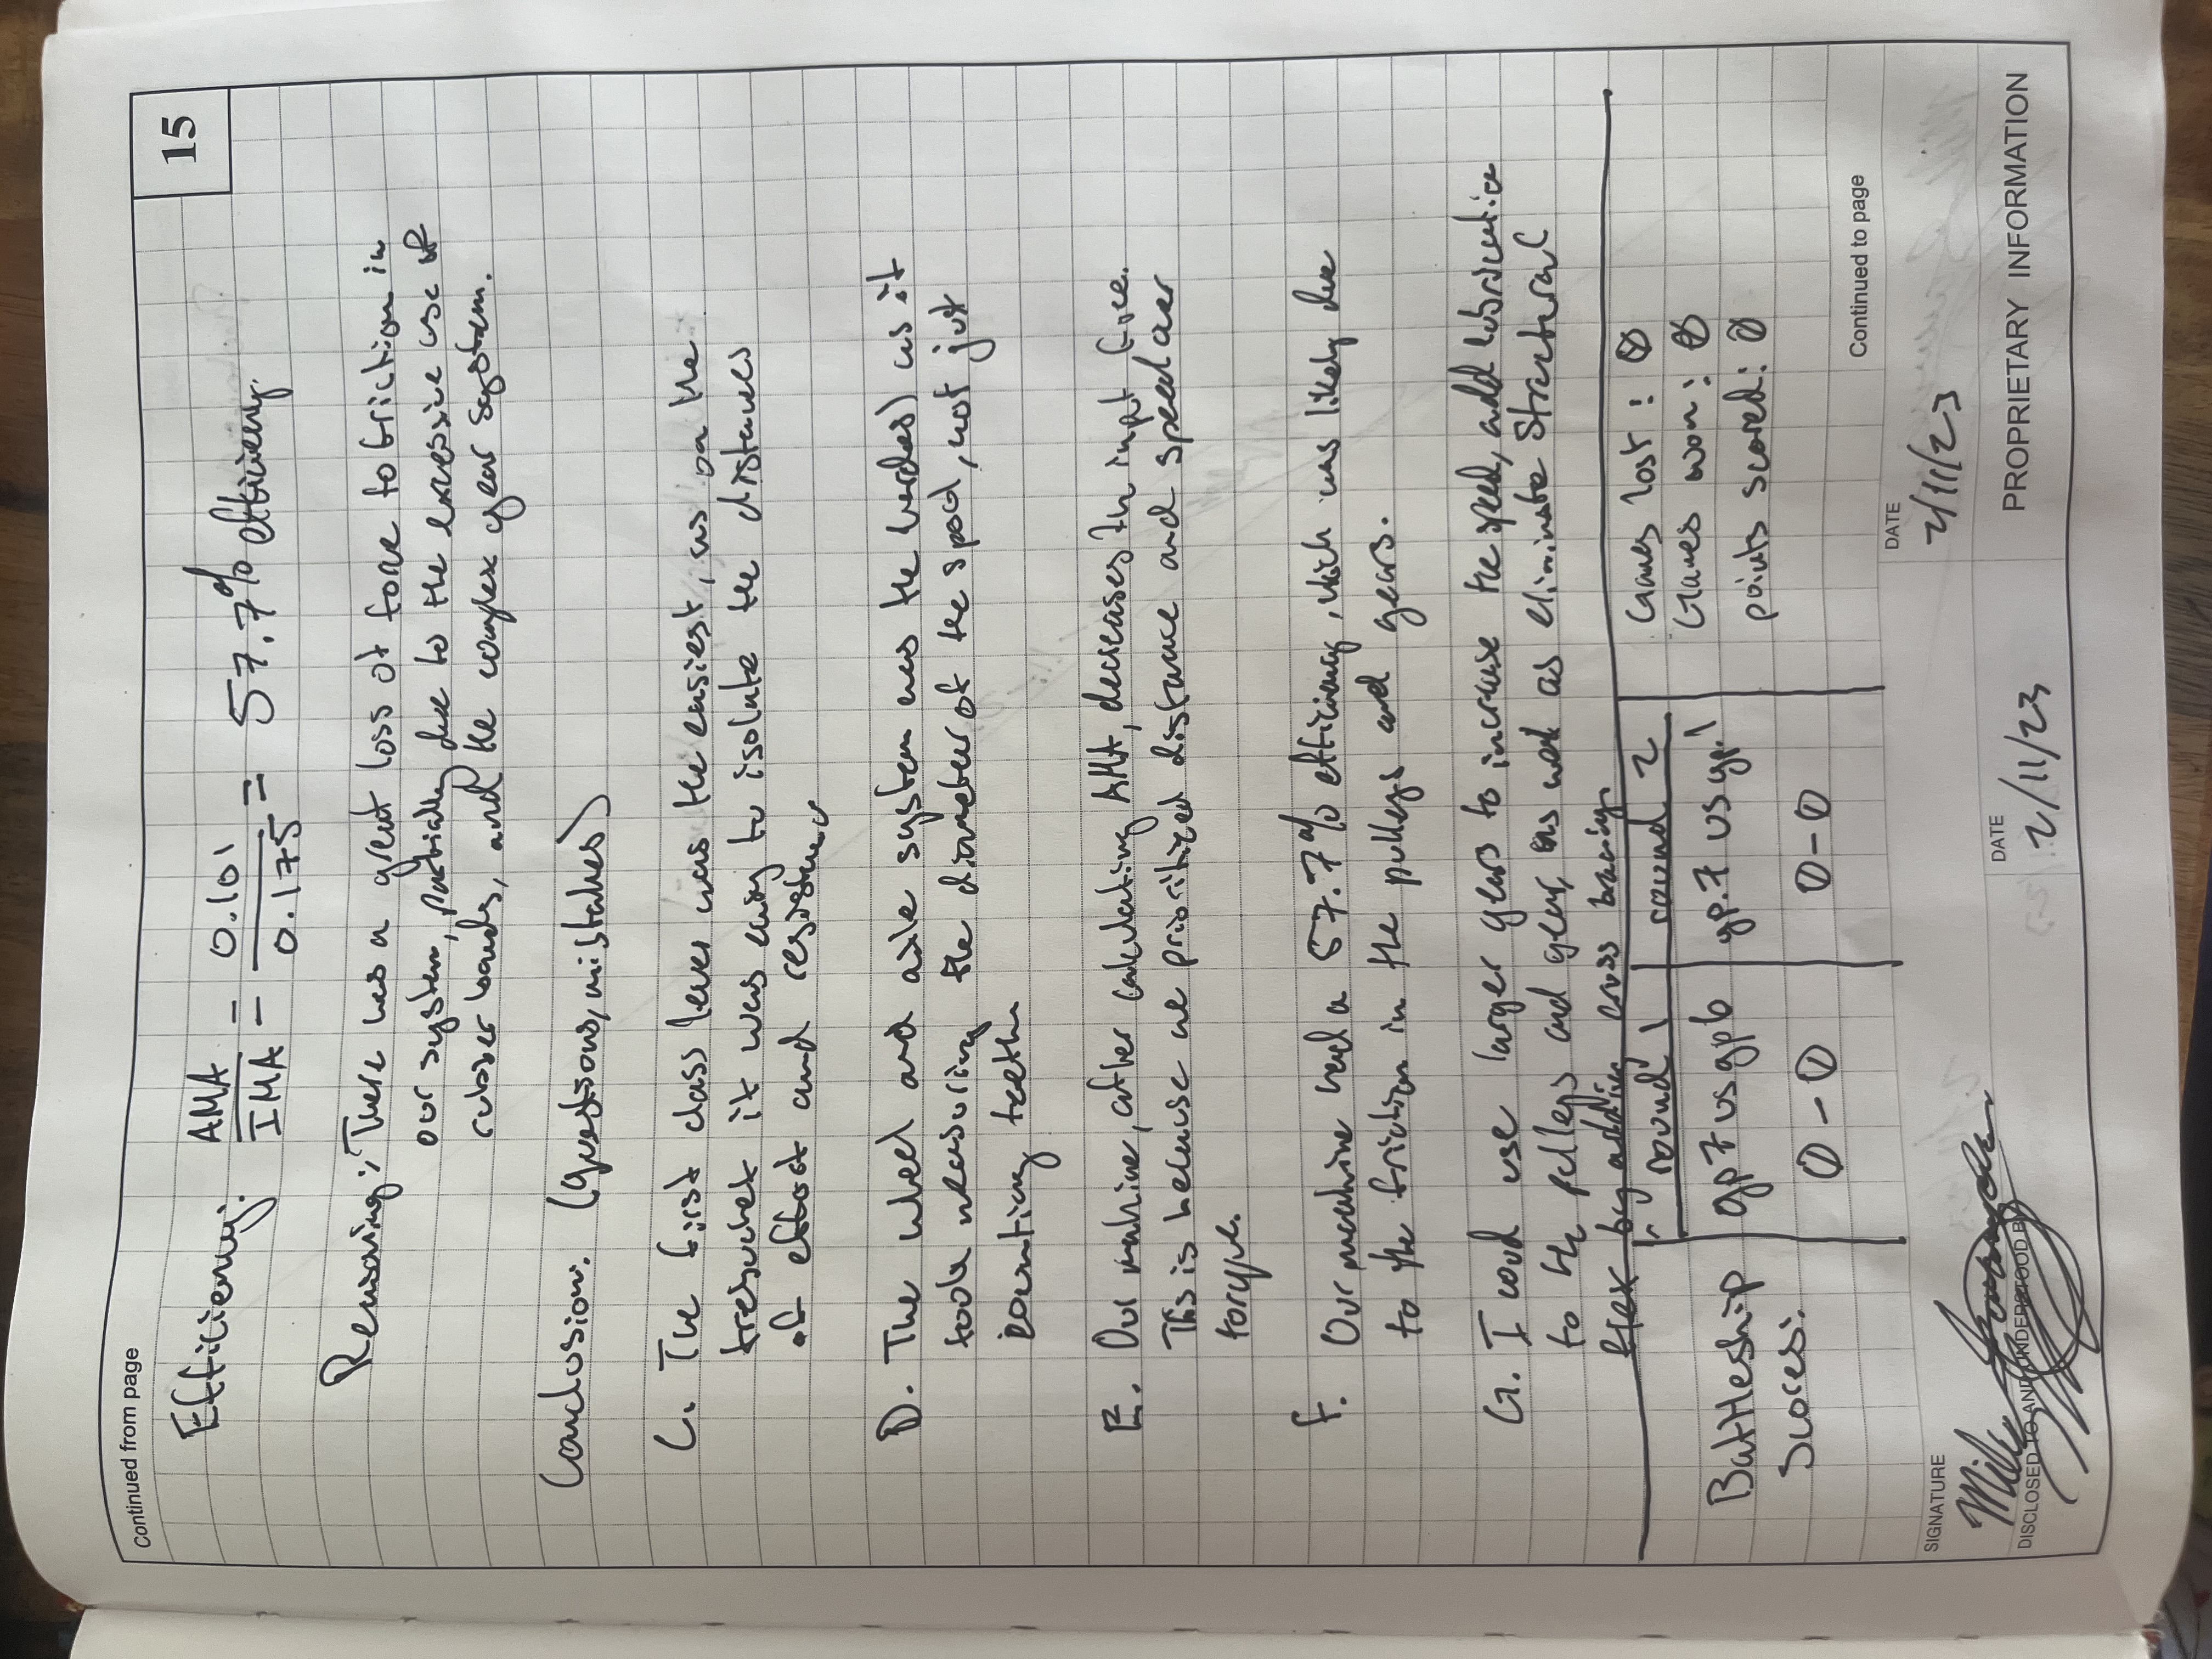 Continued from page
15
Efficiency: AMA/IMA = 0.101/0.175 = 57.7% efficiency.
Reasoning: There was a great loss of force to friction in
our system, partially due to the excessive use of
rubber bands, and the complex gear system.
Conclusion: (questions, mistakes)
C. The first class lever was the easiest, as on the
trebuchet it was easy to isolate the distances
of effort and
D. The wheel and axle system was the as it
took measuring the diameter of the spool, not just
counting teeth
E. Our mahine, after calculating AMA, decreases in input force.
This is because we prioritized distance and speed over
torque.
F. Our machine had a 57.7% efficiency, which was likely due
to the friction in the pulleys and gears.
G. I coud use larger gears to increase the speed, add lubrication
to the pulleys and gear, as well as eliminate structural
flex by adding cross bracing.
Battleship
Scores:
round 1
gp 7 vs gp 6
0 - 0
round 2
gp. 7 vs gp. 1
0 - 0
Games lost: 0
Games won: 0
points scored: 0
Continued to page
SIGNATURE
DATE
2/11/23
DISCLOSED TO AND UNDERSTOOD BY
DATE
2/11/23
PROPRIETARY INFORMATION